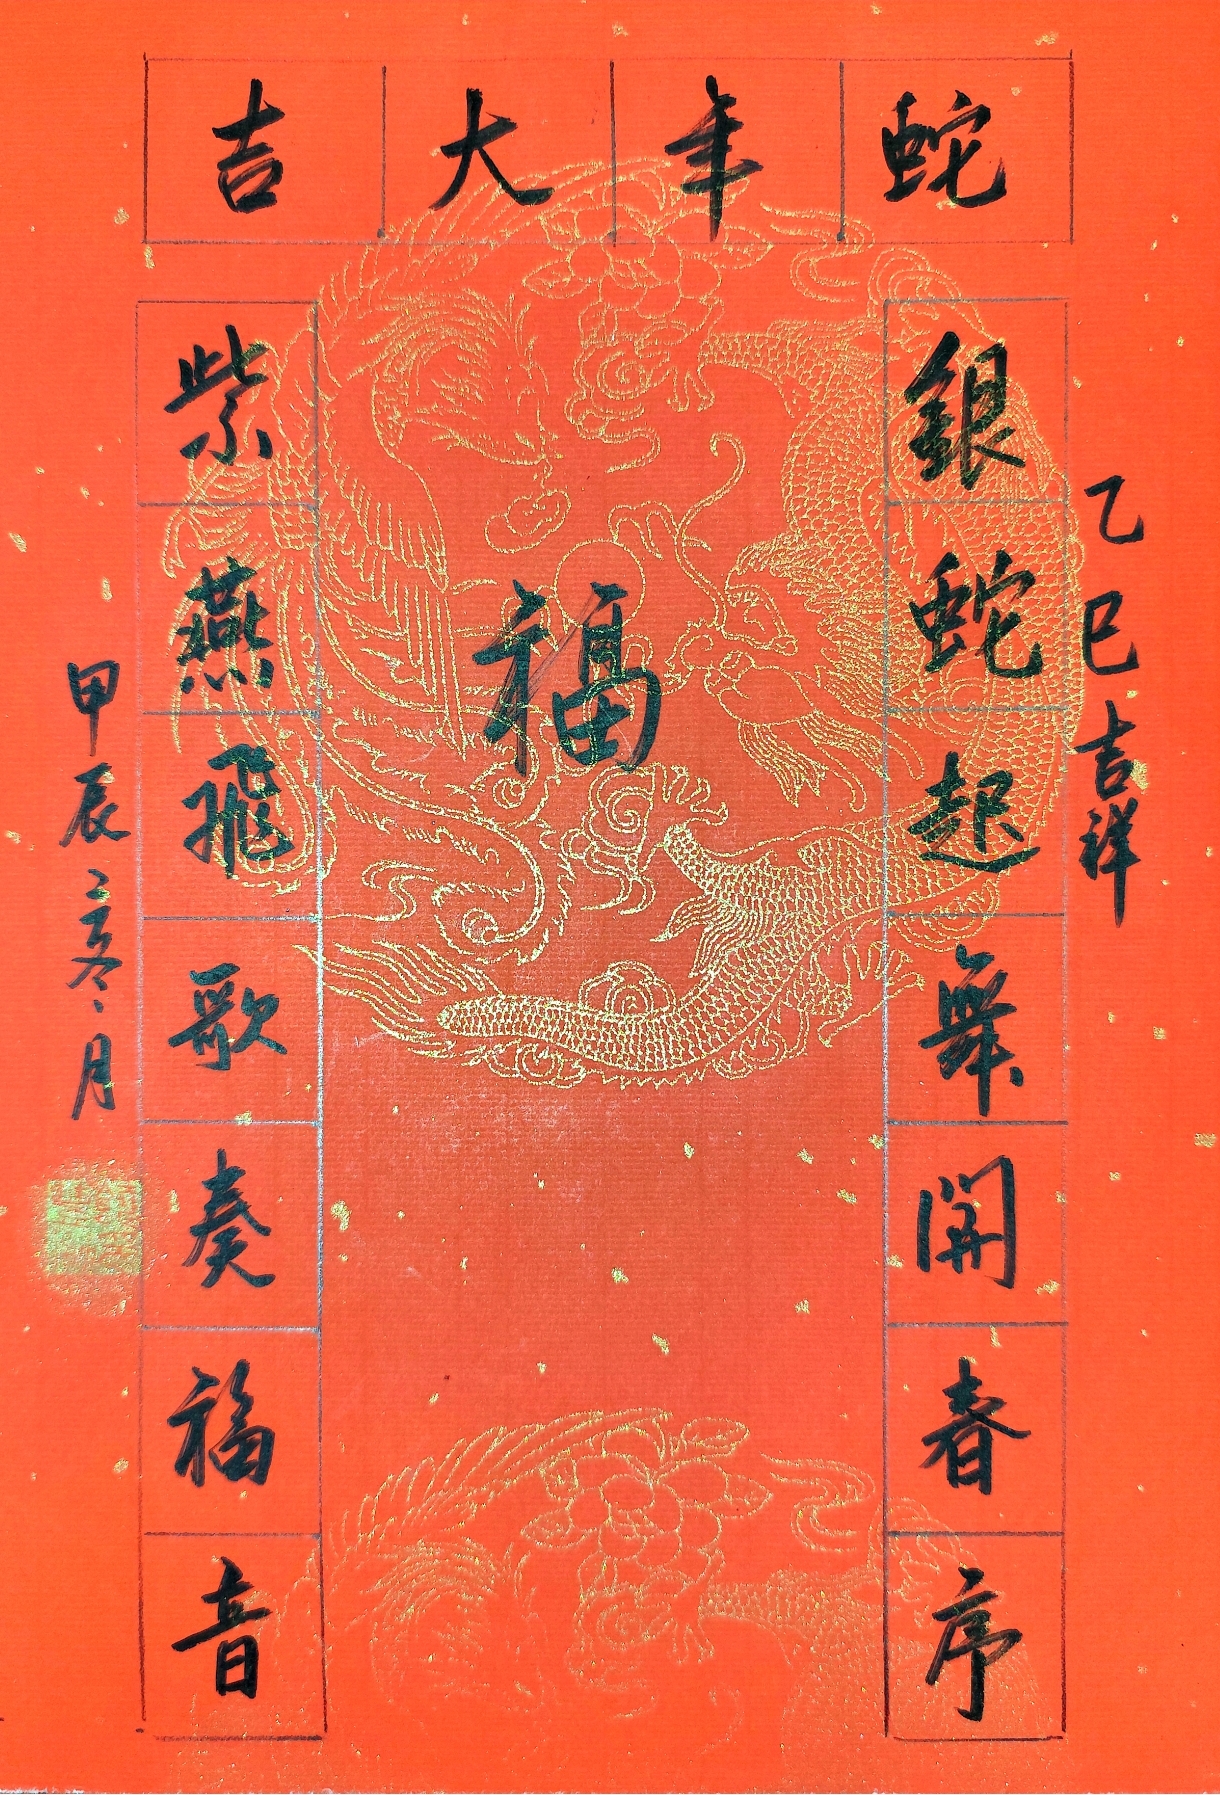 蛇年大吉
乙巳吉祥
銀蛇起舞開春序
福
紫燕飛歌奏福音
甲辰之冬月